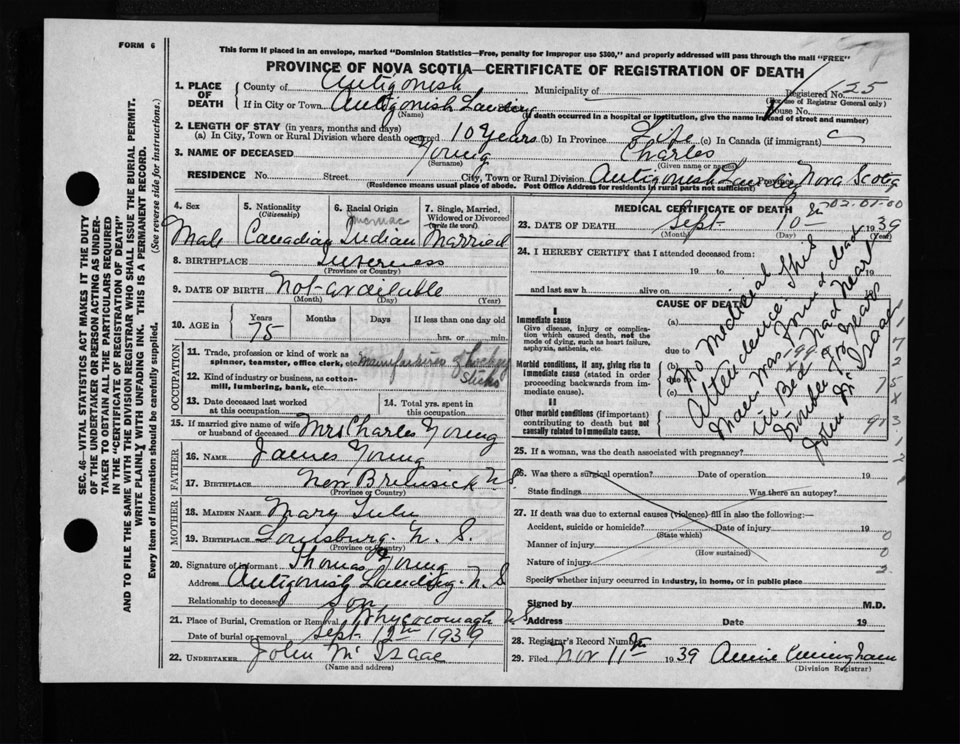 FORM 6
This form if placed in an envelope, marked "Dominion Statistics—Free, penalty for improper use $300," and properly addressed will pass through the mail "FREE"
PROVINCE OF NOVA SCOTIA—CERTIFICATE OF REGISTRATION OF DEATH
1. PLACE OF DEATH County of Antigonish Municipality of Registered No. 625
(For use of Registrar General only)
If in City or Town Antigonish Landing House No.
(Name) (If death occurred in a hospital or institution, give the name instead of street and number)
2. LENGTH OF STAY (in years, months and days)
(a) In City, Town or Rural Division where death occurred 10 Years (b) In Province Life (c) In Canada (if immigrant)
3. NAME OF DECEASED Young Charles
(Surname) (Given name or names)
RESIDENCE No. Street City, Town or Rural Division Antigonish Landing Province Nova Scotia
(Residence means usual place of abode. Post Office Address for residents in rural parts not sufficient)
4. Sex 5. Nationality (Citizenship) 6. Racial Origin 7. Single, Married, Widowed or Divorced (write the word)
Micmac
Male Canadian Indian Married
8. BIRTHPLACE Inverness
(Province or Country)
9. DATE OF BIRTH Not available
(Month) (Day) (Year)
10. AGE in Years Months Days If less than one day old
75 hrs. or min.
OCCUPATION
11. Trade, profession or kind of work as spinner, teamster, office clerk, etc. Manufacturing of Hockey Sticks
12. Kind of industry or business, as cotton-mill, lumbering, bank, etc.
13. Date deceased last worked at this occupation 14. Total yrs. spent in this occupation
15. If married give name of wife or husband of deceased Mrs Charles Young
FATHER
16. Name James Young
17. Birthplace New Brunsick N.S.
(Province or Country)
MOTHER
18. Maiden Name Mary
19. Birthplace Louisburg. N. S.
(Province or Country)
20. Signature of informant Thomas Young
Address Antigonish Landing N.S
Relationship to deceased Son
21. Place of Burial, Cremation or Removal Whycocomagh N.S
Date of burial or removal Sept 12th 1939
22. UNDERTAKER John McIsaac
(Name and address)
MEDICAL CERTIFICATE OF DEATH
02-01-00
23. DATE OF DEATH Sept 10th 1939
(Month) (Day) (Year)
24. I HEREBY CERTIFY that I attended deceased from:
19 to 19
and last saw h alive on 19
CAUSE OF DEATH
I
Immediate cause
Give disease, injury or complication which caused death, not the mode of dying, such as heart failure, asphyxia, asthenia, etc.
(a)
due to
Morbid conditions, if any, giving rise to immediate cause (stated in order proceeding backwards from immediate cause).
(b)
due to
(c)
II
Other morbid conditions (if important) contributing to death but not causally related to immediate cause.
No medical
Attendence this
man was found dead
in Bed had heart
trouble for years
John McIsaac
25. If a woman, was the death associated with pregnancy?
26. Was there a surgical operation? Date of operation 19
State findings Was there an autopsy?
27. If death was due to external causes (violence) fill in also the following:—
Accident, suicide or homicide? Date of injury 19
(State which)
Manner of injury
(How sustained)
Nature of injury
Specify whether injury occurred in industry, in home, or in public place
Signed by M.D.
Address Date 19
28. Registrar's Record Number
29. Filed Nov 11th 1939 Annie Cunningham
(Division Registrar)
SEC. 46—VITAL STATISTICS ACT MAKES IT THE DUTY
OF THE UNDERTAKER OR PERSON ACTING AS UNDER-
TAKER TO OBTAIN ALL THE PARTICULARS REQUIRED
IN THE "CERTIFICATE OF REGISTRATION OF DEATH"
AND TO FILE THE SAME WITH THE DIVISION REGISTRAR WHO SHALL ISSUE THE BURIAL PERMIT.
WRITE PLAINLY WITH UNFADING INK. THIS IS A PERMANENT RECORD.
Every item of Information should be carefully supplied. (See reverse side for instructions.)